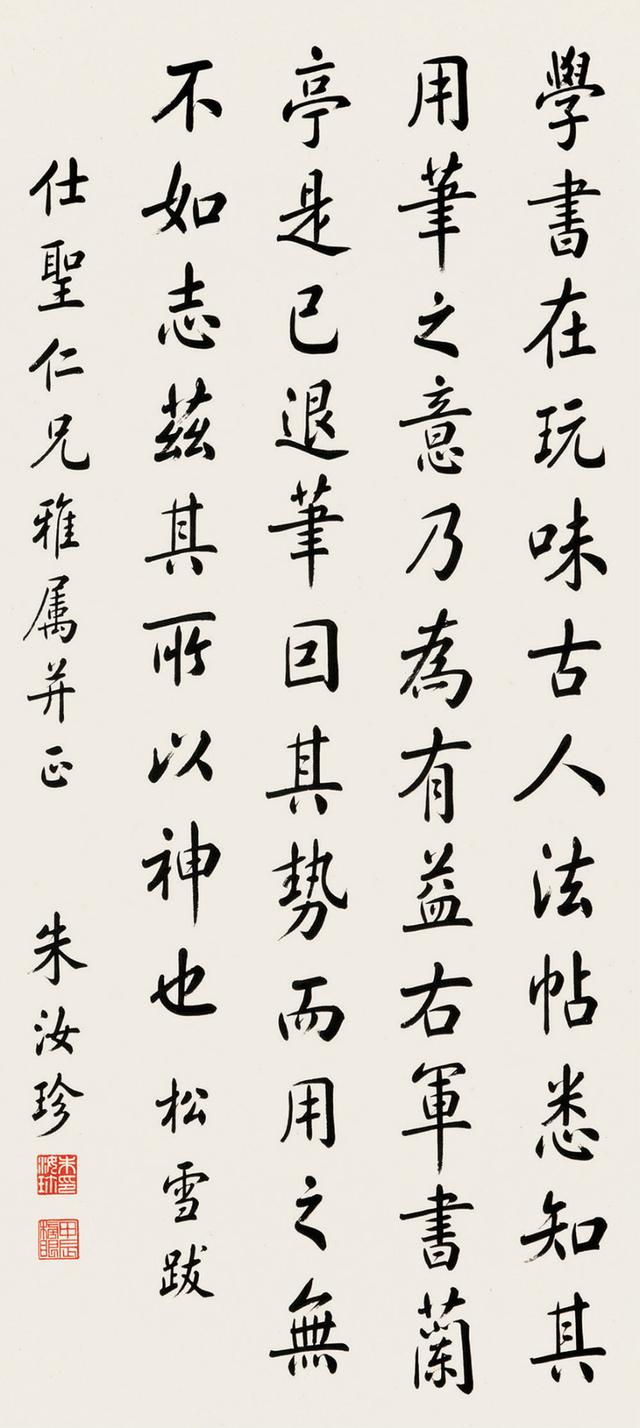 學書在玩味古人法帖悉知其
用筆之意乃為有益右軍書蘭
亭是已退筆因其勢而用之無
不如志茲其所以神也 松雪跋
仕聖仁兄雅属并正 朱汝珍
朱印汝珍
甲辰榜眼